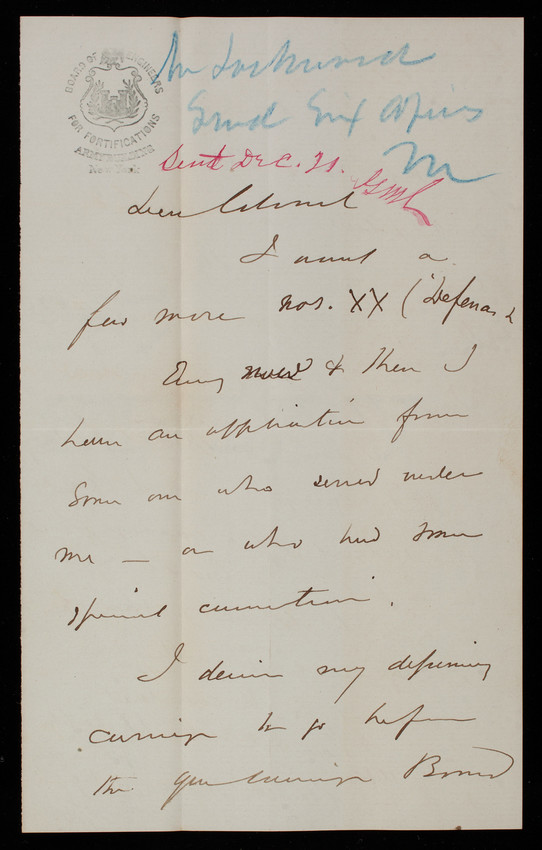 BOARD OF ENGINEERS
FOR FORTIFICATIONS
ARMY BUILDING
New York
Mr Lockwood
Send
Sent Dec. 21.
Dear Colonel
I want a
few more Nos. XX ("Defenses
Every now & then I
have an application from
some one who served under
me — or who had some
special connection.
I desire my depressing
carriage to go before
the gun carriage Board